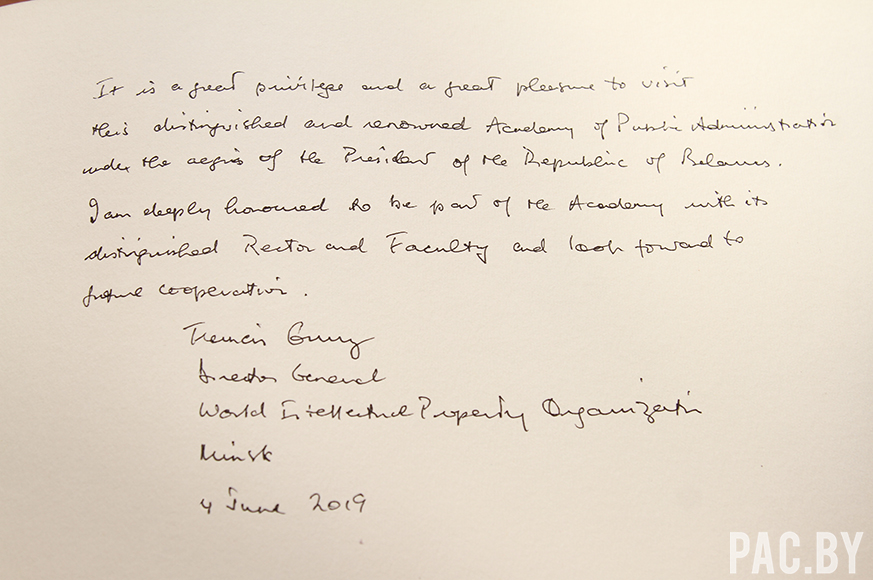 It is a great privilege and a great pleasure to visit
this distinguished and renowned Academy of Public Administration
under the aegis of the President of the Republic of Belarus.
I am deeply honoured to be part of the Academy with its
distinguished Rector and Faculty and look forward to
future cooperation.
Francis Gurry
Director General
World Intellectual Property Organization
Minsk
4 June 2019
PAC.BY